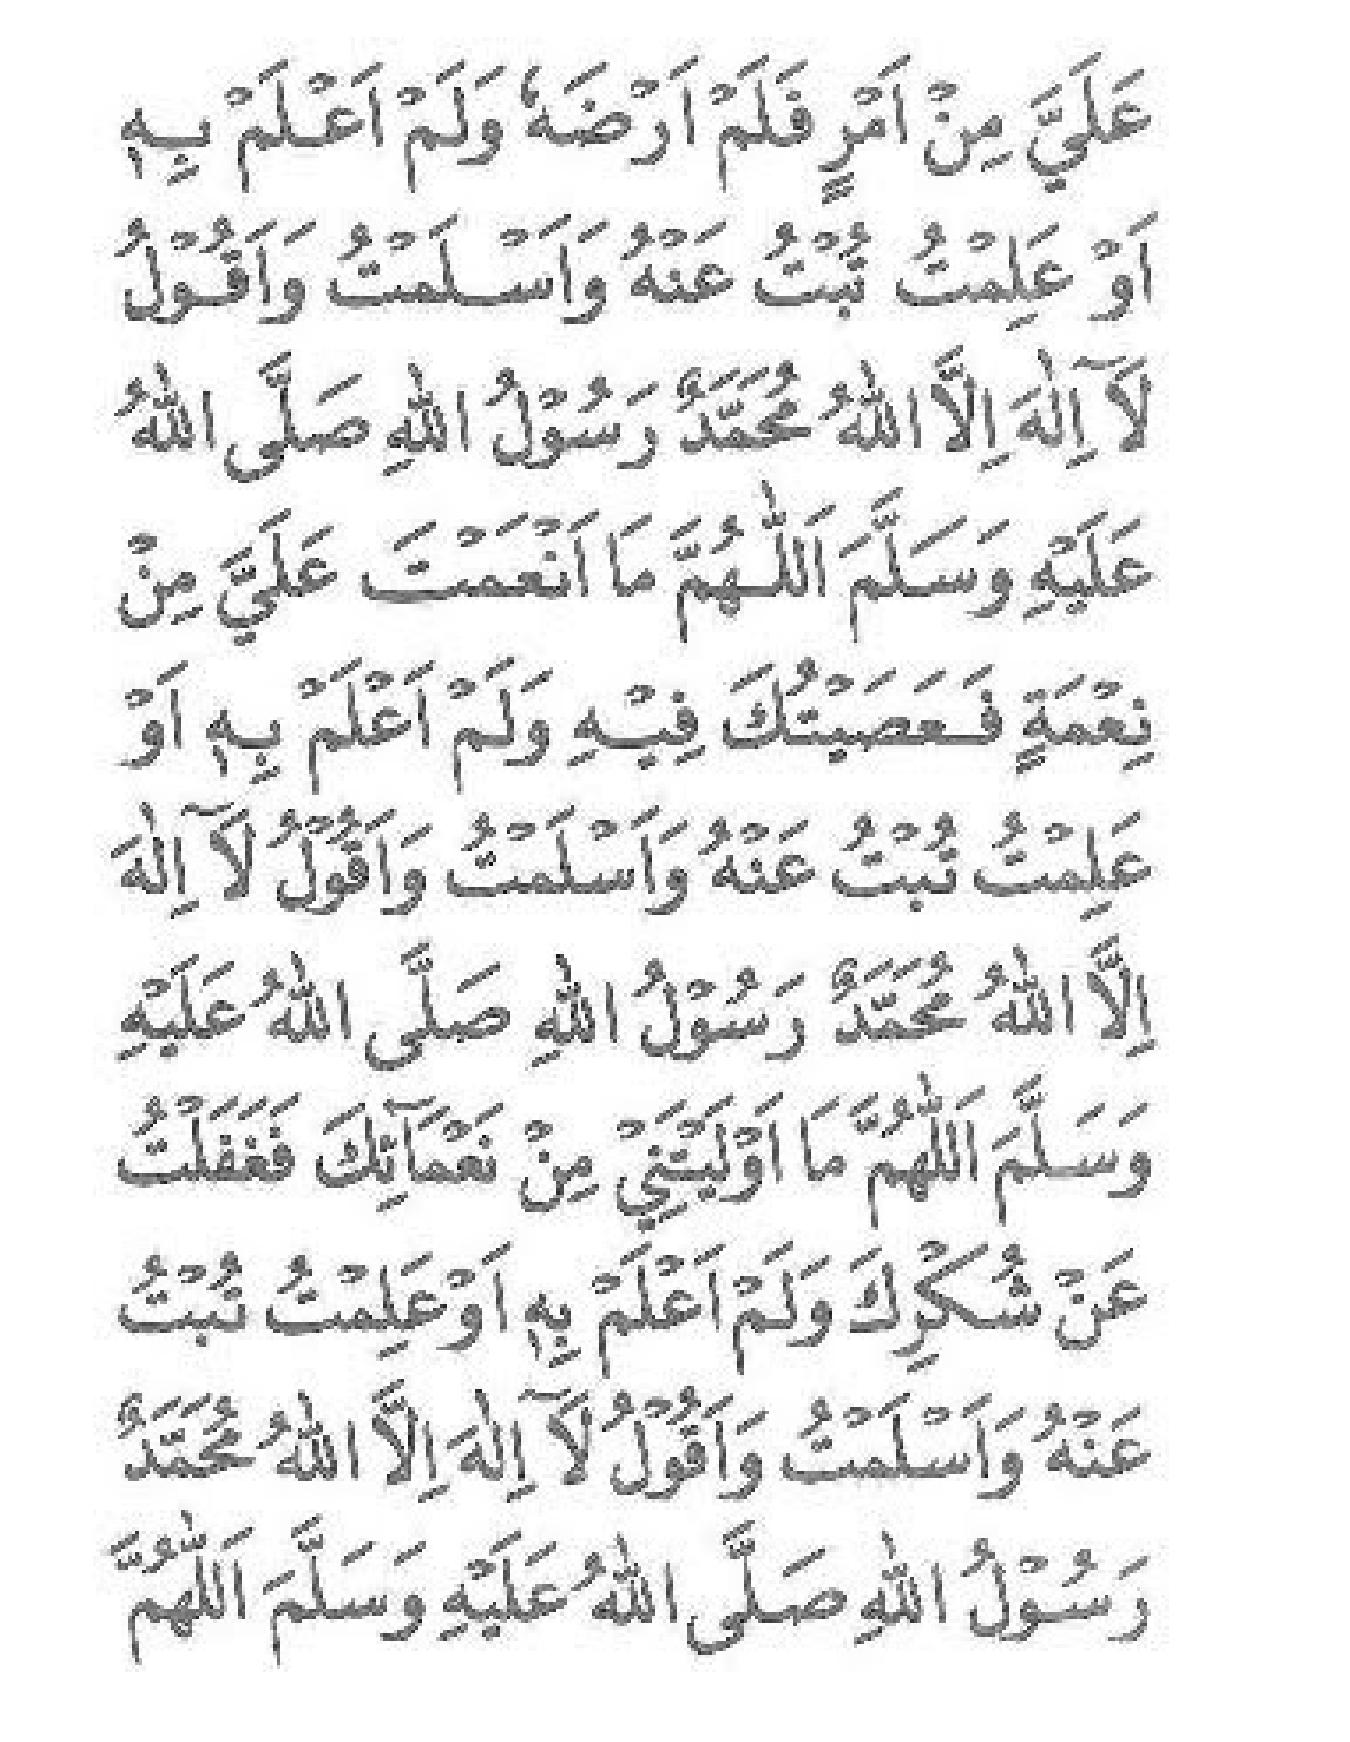 عَلَيَّ مِنْ اَمْرٍ فَلَمْ اَرْضَهٗ وَلَمْ اَعْلَمْ بِهٖ
اَوْ عَلِمْتُ تُبْتُ عَنْهُ وَاَسْلَمْتُ وَاَقُوْلُ
لَآ اِلٰهَ اِلَّا اللّٰهُ مُحَمَّدٌ رَسُوْلُ اللّٰهِ صَلَّى اللّٰهُ
عَلَيْهِ وَسَلَّمَ اَللّٰهُمَّ مَا اَنْعَمْتَ عَلَيَّ مِنْ
نِعْمَةٍ فَعَصَيْتُكَ فِيْهِ وَلَمْ اَعْلَمْ بِهٖ اَوْ
عَلِمْتُ تُبْتُ عَنْهُ وَاَسْلَمْتُ وَاَقُوْلُ لَآ اِلٰهَ
اِلَّا اللّٰهُ مُحَمَّدٌ رَسُوْلُ اللّٰهِ صَلَّى اللّٰهُ عَلَيْهِ
وَسَلَّمَ اَللّٰهُمَّ مَا اَوْلَيْتَنِيْ مِنْ نَعْمَآئِكَ فَغَفَلْتُ
عَنْ شُكْرِكَ وَلَمْ اَعْلَمْ بِهٖ اَوْ عَلِمْتُ تُبْتُ
عَنْهُ وَاَسْلَمْتُ وَاَقُوْلُ لَآ اِلٰهَ اِلَّا اللّٰهُ مُحَمَّدٌ
رَسُوْلُ اللّٰهِ صَلَّى اللّٰهُ عَلَيْهِ وَسَلَّمَ اَللّٰهُمَّ